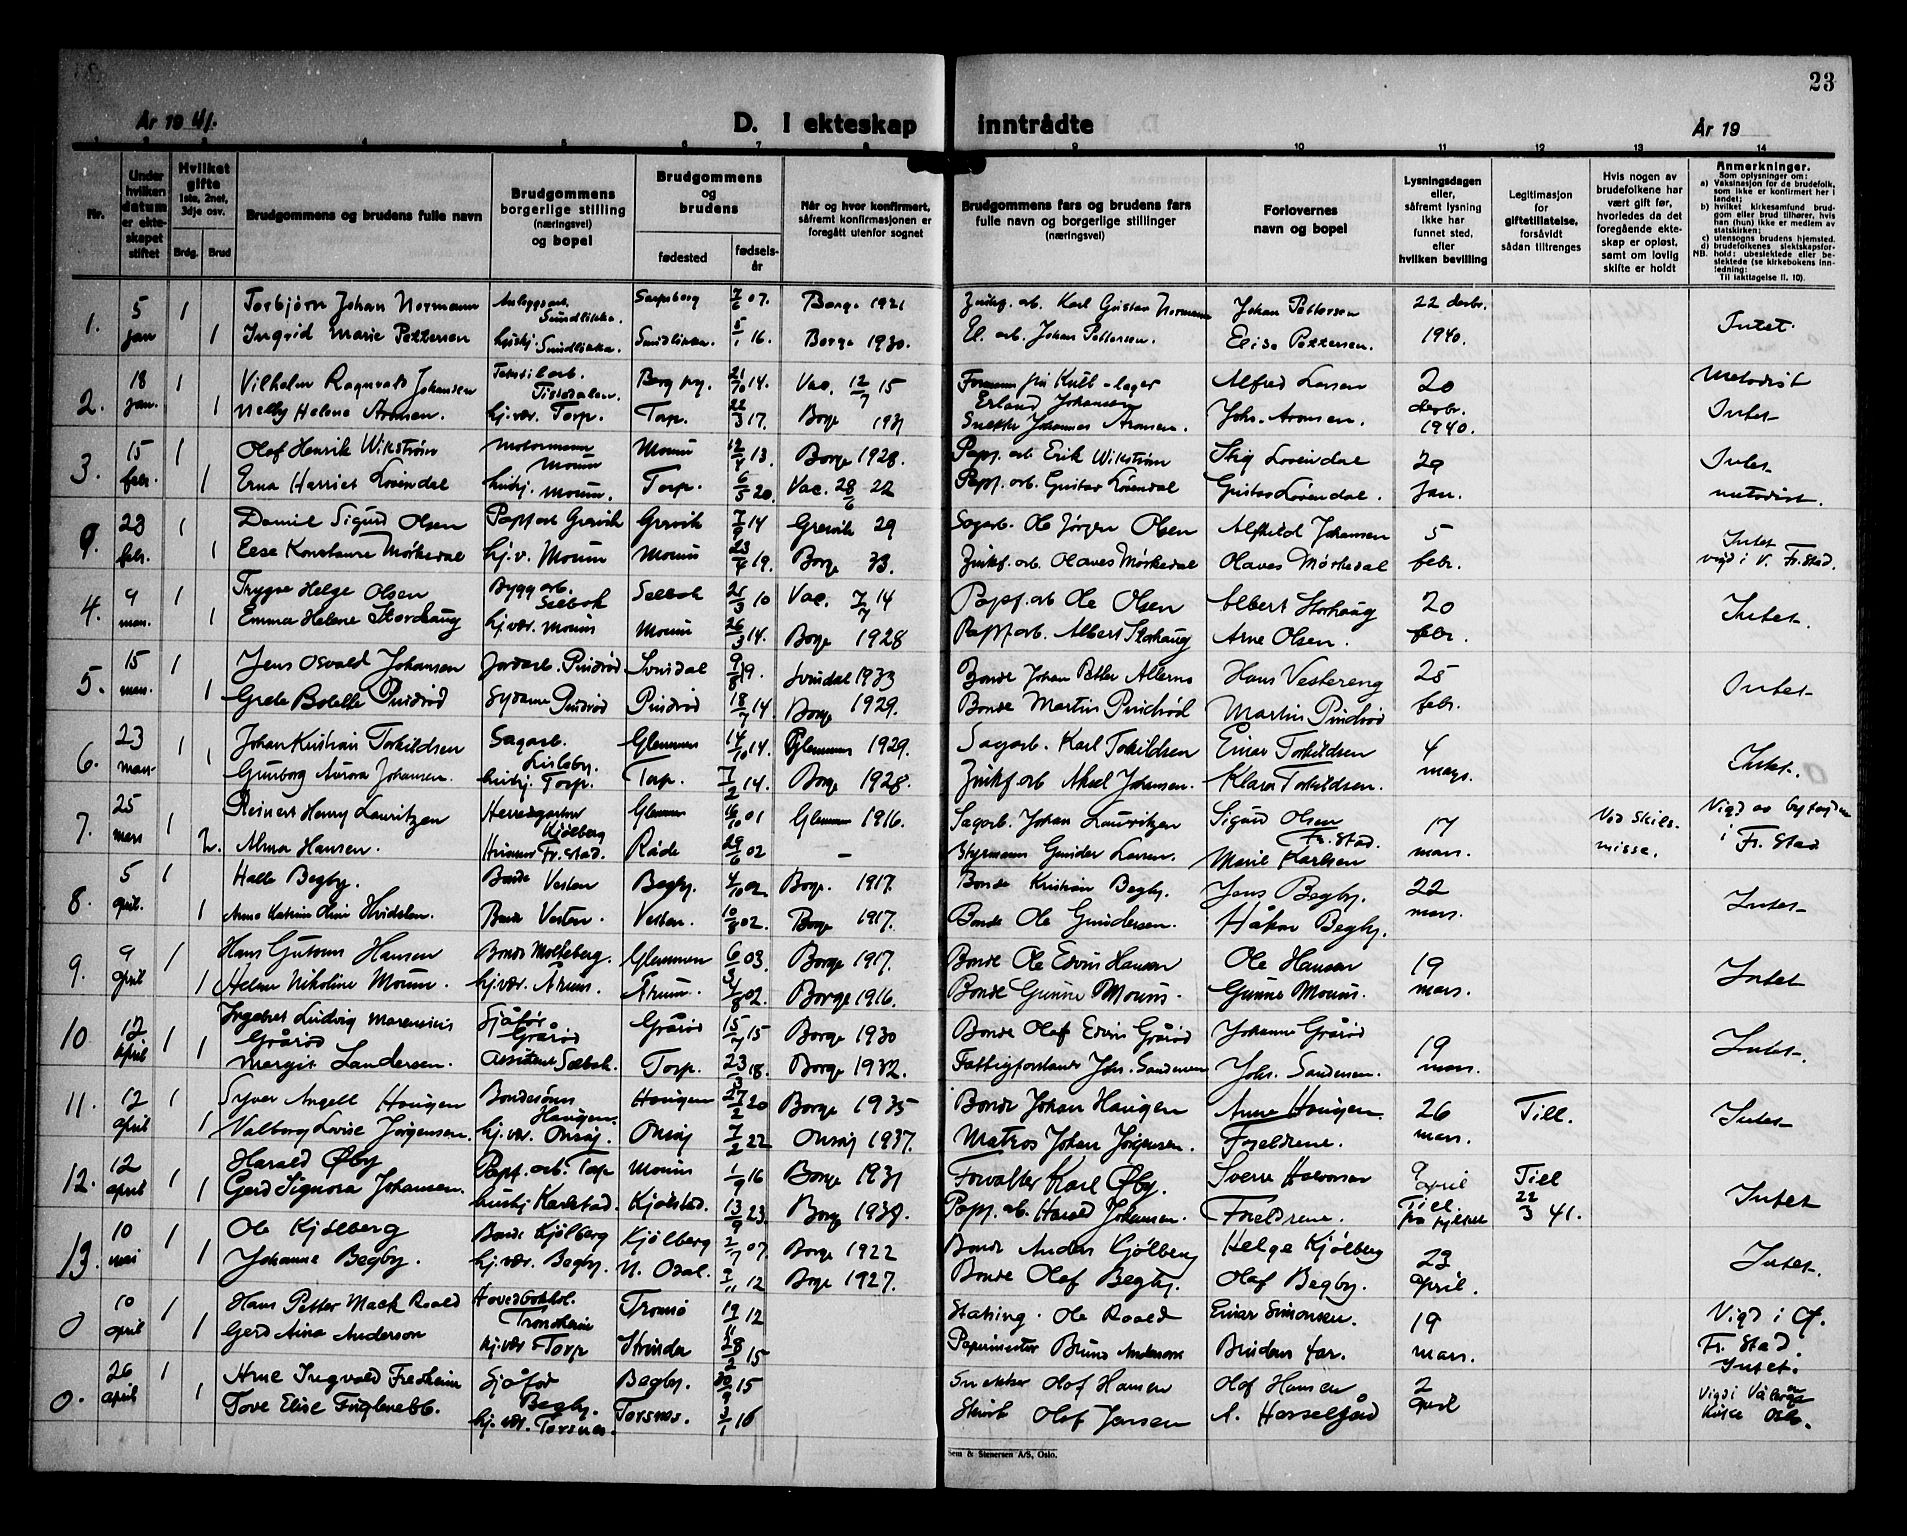 23
År 1941.
D. I ekteskap inntrådte
År 19
1 2 3 4 5 6 7 8 9 10 11 12 13 14
Nr.
Under hvilken datum er ekteskapet stiftet
Hvilket gifte 1ste, 2net, 3dje osv.
Brdg. Brud
Brudgommens og brudens fulle navn
Brudgommens borgerlige stilling (næringsvei) og bopel
Brudgommens og brudens
fødested
fødselsår
Når og hvor konfirmert, såfremt konfirmasjonen er foregått utenfor sognet
Brudgommens fars og brudens fars fulle navn og borgerlige stillinger (næringsvei)
Forlovernes navn og bopel
Lysningsdagen eller, såfremt lysning ikke har funnet sted, efter hvilken bevilling
Legitimasjon for giftetillatelse, forsåvidt sådan tiltrenges
Hvis nogen av brudefolkene har vært gift før, hvorledes da det foregående ekteskap er opløst, samt om lovlig skifte er holdt
Anmerkninger.
Som oplysninger om:
a) Vaksinasjon for de brudefolk, som ikke er konfirmert her i landet;
b) hvilket kirkesamfund brudgom eller brud tilhører, hvis han (hun) ikke er medlem av statskirken;
c) utensogns brudens hjemsted.
d) brudefolkenes slektskapsforhold: ubeslektede eller beslektede (se kirkebokens innledning:
NB. Til iakttagelse II. 10).
1. 5 jan 1 Torbjørn Johan Normann Anleggsarb. Sundløkka. Sarpsborg 7/6 07. Borge 1921 Zinkf. arb. Karl Gustav Normann Johan Pettersen 22 decbr. 1940. Intet.
1 Ingrid Marie Pettersen Sundløkka. Sundløkka. 5/1 16. Borge 1930. El. arb. Johan Pettersen. Elise Pettersen.
2. 18 jan. 1 Vilhelm Ragnvald Johansen Tekstilarb. Tistedalen. Berg prg. 21/10 14. Vac. 12/7 15 Erland Johansen Alfred Larsen 20 decbr. 1940. Metodist
1 Nelly Helene Aronsen. hj.vær. Torp. Torp. 22/3 17. Borge 1931 Snekker Johannes Aronsen. Johs. Aronsen. Intet
3. 15 febr. 1 Olaf Henrik Wikstrøm Motormann Moum Moum 12/4 13. Borge 1928. Papf. arb Erik Wikstrøm Stig Lövendal 29 jan. Intet
1 Erna Harriet Lövendal hushj. Moum. Torp. 6/5 20. Vac. 28/6 22 Papf. arb. Gustav Lövendal Gustav Lövendal. metodist.
0. 23 febr. 1 Daniel Sigurd Olsen Papf arb Grevik Grevik 7/9 14 Grevik 29 Sagarb. Ole Jørgen Olsen Alfhild Johansen 5 febr. Intet
1 Else Konstanse Mørkedal hj.v. Moum Moum 19. Borge 33. Zinkf. arb. Olaves Mørkedal Olaves Mørkedal vigd i V. Fr.stad.
4. 9 mars. 1 Trygve Helge Olsen Bygg arb. Selbak Selbak 25/3 10 Vac. 7/7 14 Papf. arb Ole Olsen Albert Storhaug 20 febr. Intet.
1 Emma Helene Storhaug hj.vær. Moum Moum 26/3 14. Borge 1928 Papf arb. Albert Storhaug Arne Olsen.
5. 15 mars. 1 Jens Osvald Johansen Jordarb. Pindrød Svindal 9/8 19. Svindal 1933 Bonde Johan Petter Hans Vestereng 25 febr. Intet
1 Grete Bolette Pindrød Sydame Pindrød Pindrød 18/7 14. Borge 1929. Bonde Martin Pindrød Martin Pindrød
6. 23 mars 1 Johan Kristian Torkildsen Sagarb. Lisleby. Glemmen 14/10 14. Glemmen 1929. Sagarb. Karl Torkildsen Einar Torkildsen 4 mars. Intet.
1 Gunborg Aurora Johansen. hushj. Torp. Torp. 7/2 14. Borge 1928. Zinkf arb Aksel Johansen. Klara Torkildsen.
7. 25 mars 1 Reinert Henry Lauritzen Kjølberg Glemmen 16/10 01 Glemmen 1916. Sagarb. Johan Lauritzen Sigurd Olsen Fr.stad. 17 mars. Ved skilsmisse. Vigd av byfogden i Fr. Stad
2. Alma Hansen. Fr. Stad. Råde 29/6 02 – Styrmann Gunder Larsen. Marie Karlsen
8. 5 april. 1 Halle Begby. Bonde Vesten Begby. 4/10 02 Borge. 1917. Bonde Kristian Begby. Jens Begby. 22 mars. Intet
1 Anna Katrine Oline Hvidsten. Bonde Vesten. Vesten. 10/8 02. Borge 1917. Bonde Ole Gundersen. Håkon Begby.
9. 9 april 1 Hans Guttorm Hansen Bonde Molteberg. Glemmen 6/3 03. Borge 1917. Bonde Ole Edvin Hansen Ole Hansen 19 mars. Intet
1 Helene Nikoline Moum. hj.vær. Årum. Årum. 4/8 02. Borge 1916. Bonde Gunne Moum. Gunne Moum.
10 12 april 1 Ingebret Ludvig Marensius Grårød Sjåfør Grårød Grårød 15/7 15 Borge 1930 Bonde Olaf Edvin Grårød Johanne Grårød 19 mars. Intet.
1 Margit Sandersen. Assistent Selbak. Torp. 23/3 18. Borge 1932. Fattigforstander Johs. Sandersen Johs. Sandersen.
11. 12 april 1 Syver Angell Haugen Bondesønn Haugen Haugen 27/2 20 Borge 1935 Bonde Johan Haugen Anna Haugen 26 mars. Till. Intet
1 Valborg Lovise Jørgensen. hj.vær. Onsøy. Onsøy 7/2 22 Onsøy 1937. Matros Johan Jørgensen. Foreldrene.
12. 12 april 1 Harald Øby Papf. arb. Torp Moum 1/9 16 Borge 1931 Forvalter Karl Øby. Sverre Halvorsen 9 april Till. fra fylket Till 22/3 41. Intet
1 Gerd Signora Johansen. hushj Karlstad. Kjølstad. 13/9 23. Borge Papf. arb. Harald Johansen. Foreldrene.
13. 10 mai 1 Ole Kjølberg Bonde Kjölberg Kjölberg 2/7 07. Borge 1922 Bonde Anders Kjölberg Helge Kjölberg 23 april. Intet.
1 Johanne Begby. hj.vær. Begby. N. Odal. 12 Borge 1927. Bonde Olaf Begby. Olaf Begby.
0 10 april 1 Hans Petter Mack Roald Trondheim Tromsø 19/11 12 Ole Roald Einar Simonsen. 19 mars. Vigd i Gl. Fr. Stad. Intet.
1 Gerd Aina Andersen hj.vær Torp Strinda 28/2 15 Papirmester Bruno Andersen Brudens far.
0. 26 april 1 Arne Ingvald Fredheim Sjåfør Begby. Begby. 15 Snekker Olaf Hansen Olaf Hansen 2 april Vigd i Vålerengen Kirke Oslo.
1 Tove Elise Fuglenebb. hj.vær. Torsnes. Torsnes. 16 Olaf Jensen A. Hasselgård
Sem & Stenersen A/S, Oslo.